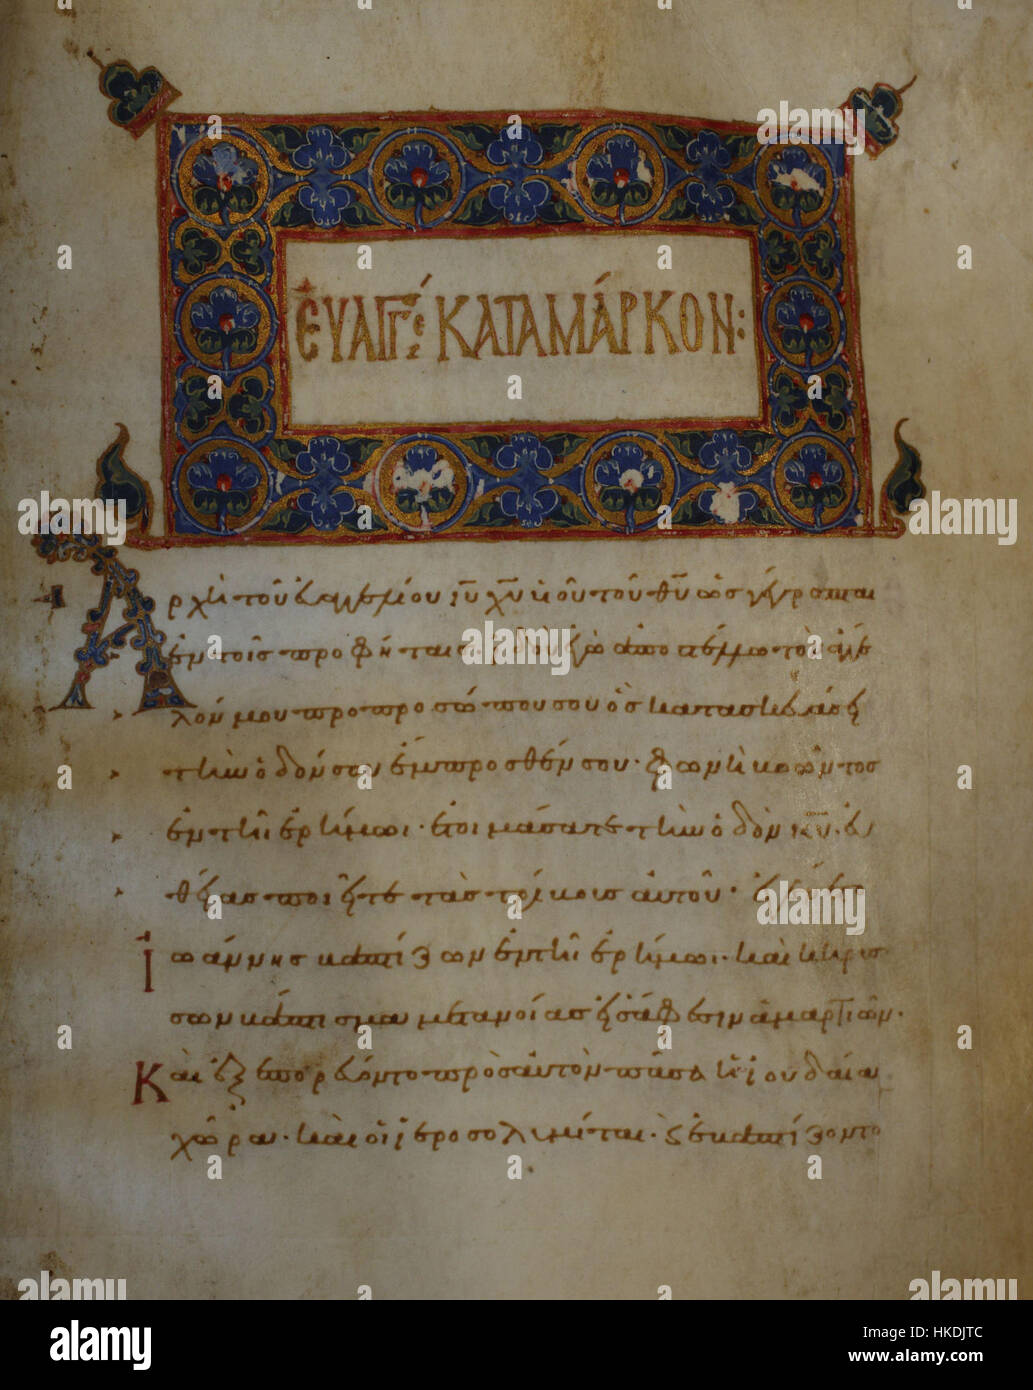 ΕΥΑΓΓέ ΚΑΤΑ ΜΆΡΚΟΝ:
Ἀρχὴ τοῦ εὐαγγελίου ἰυ χυ υἱοῦ τοῦ θυ ὡς γέγραπται
ἐν τοῖς προφήταις. ἰδοὺ ἐγὼ ἀποστέλλω τὸν ἄγγε
λόν μου πρὸ προσώπου σου ὃς κατασκευάσει
τὴν ὁδόν σου ἔμπροσθέν σου· φωνὴ βοῶντος
ἐν τῆ ἐρήμωι· ἑτοιμάσατε τὴν ὁδὸν κυ· εὐ
θείας ποιεῖτε τὰς τρίβους αὐτοῦ· ἐγένετο
Ἰωάννης βαπτίζων ἐν τῆι ἐρήμωι· καὶ κηρύσ
σων βάπτισμα μετανοίας εἰς ἄφεσιν ἁμαρτιῶν·
Καὶ ἐξεπορεύοντο πρὸς αὐτὸν πᾶσα ἡ ἰουδαία
χώρα· καὶ οἱ ἱεροσολυμῖται· καὶ ἐβαπτίζοντο
alamy stock photo
alamy
a
Image ID: HKDJTC
www.alamy.com